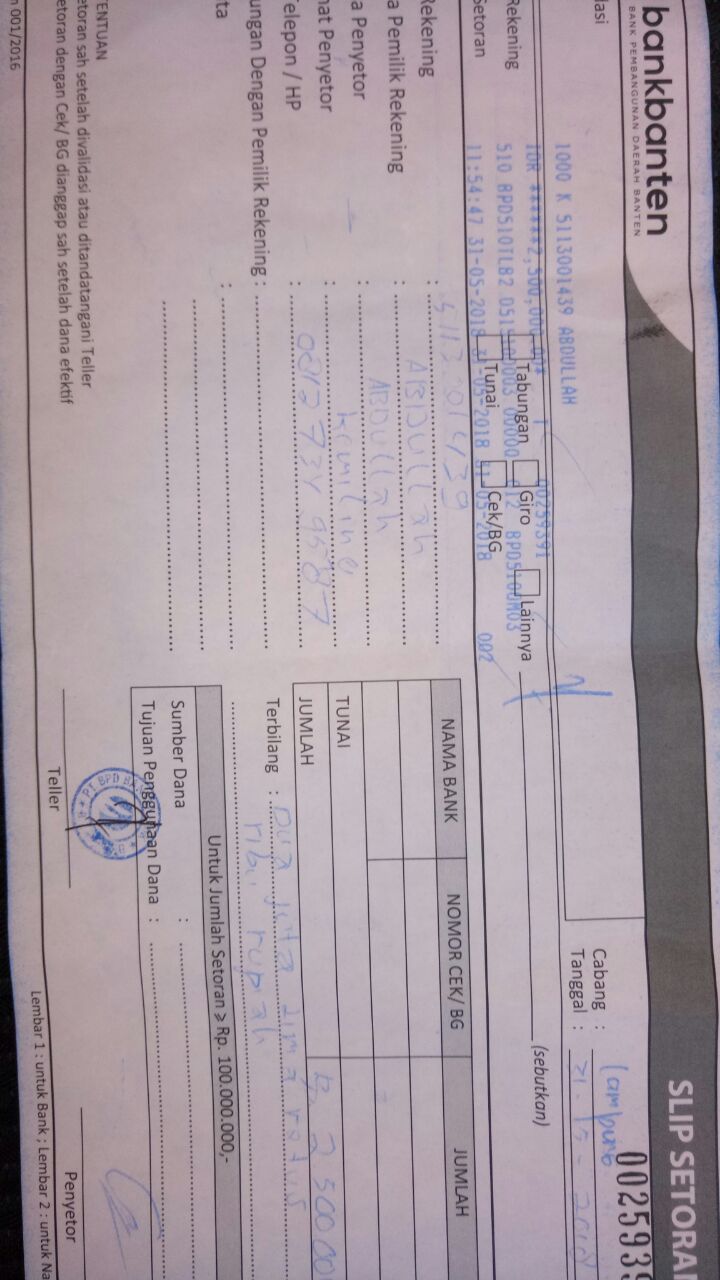 bankbanten
BANK PEMBANGUNAN DAERAH BANTEN
SLIP SETORA
002593
Cabang : Lampung
Tanggal :
dasi
1000 K 5113001439 ABDULLAH
IDR ******2,500,000.00* 00259391
510 BPD510TLB2
11:54:47 31-05-2018 31-05-2018 31-05-2018 002
Rekening
Tabungan Giro Lainnya
(sebutkan)
Setoran
Tunai Cek/BG
Rekening :
a Pemilik Rekening : ABDULLAh
a Penyetor : ABDULLah
mat Penyetor : kemiling
Telepon / HP :
ungan Dengan Pemilik Rekening :
ta :
NAMA BANK NOMOR CEK/ BG JUMLAH
TUNAI
JUMLAH
Terbilang : Dua juta Lima ratus
ribu rupiah
Untuk Jumlah Setoran ≥ Rp. 100.000.000,-
Sumber Dana :
Tujuan Penggunaan Dana :
ENTUAN
etoran sah setelah divalidasi atau ditandatangani Teller
etoran dengan Cek/ BG dianggap sah setelah dana efektif
PT. BPD
Teller
Penyetor
Lembar 1 : untuk Bank ; Lembar 2 : untuk Na
n 001/2016